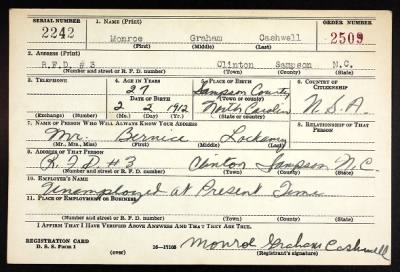 SERIAL NUMBER 1. NAME (Print) ORDER NUMBER
2242 Monroe Graham Cashwell 2509
(First) (Middle) (Last)
2. ADDRESS (Print)
R.F.D. #3 Clinton Sampson N.C.
(Number and street or R. F. D. number) (Town) (County) (State)
3. TELEPHONE 4. AGE IN YEARS 5. PLACE OF BIRTH 6. COUNTRY OF CITIZENSHIP
27 Sampson County
DATE OF BIRTH (Town or county)
2 2 1912 North Carolina U.S.A.
(Exchange) (Number) (Mo.) (Day) (Yr.) (State or country)
7. NAME OF PERSON WHO WILL ALWAYS KNOW YOUR ADDRESS 8. RELATIONSHIP OF THAT PERSON
Mr. Bernice Lockamy
(Mr., Mrs., Miss) (First) (Middle) (Last)
9. ADDRESS OF THAT PERSON
R.F.D #3 Clinton Sampson N.C.
(Number and street or R. F. D. number) (Town) (County) (State)
10. EMPLOYER'S NAME
Unemployed at Present Time
11. PLACE OF EMPLOYMENT OR BUSINESS
(Number and street or R. F. D. number) (Town) (County) (State)
I AFFIRM THAT I HAVE VERIFIED ABOVE ANSWERS AND THAT THEY ARE TRUE.
REGISTRATION CARD
D. S. S. Form 1 (over) 16—17105 Monroe Graham Cashwell
(Registrant's signature)